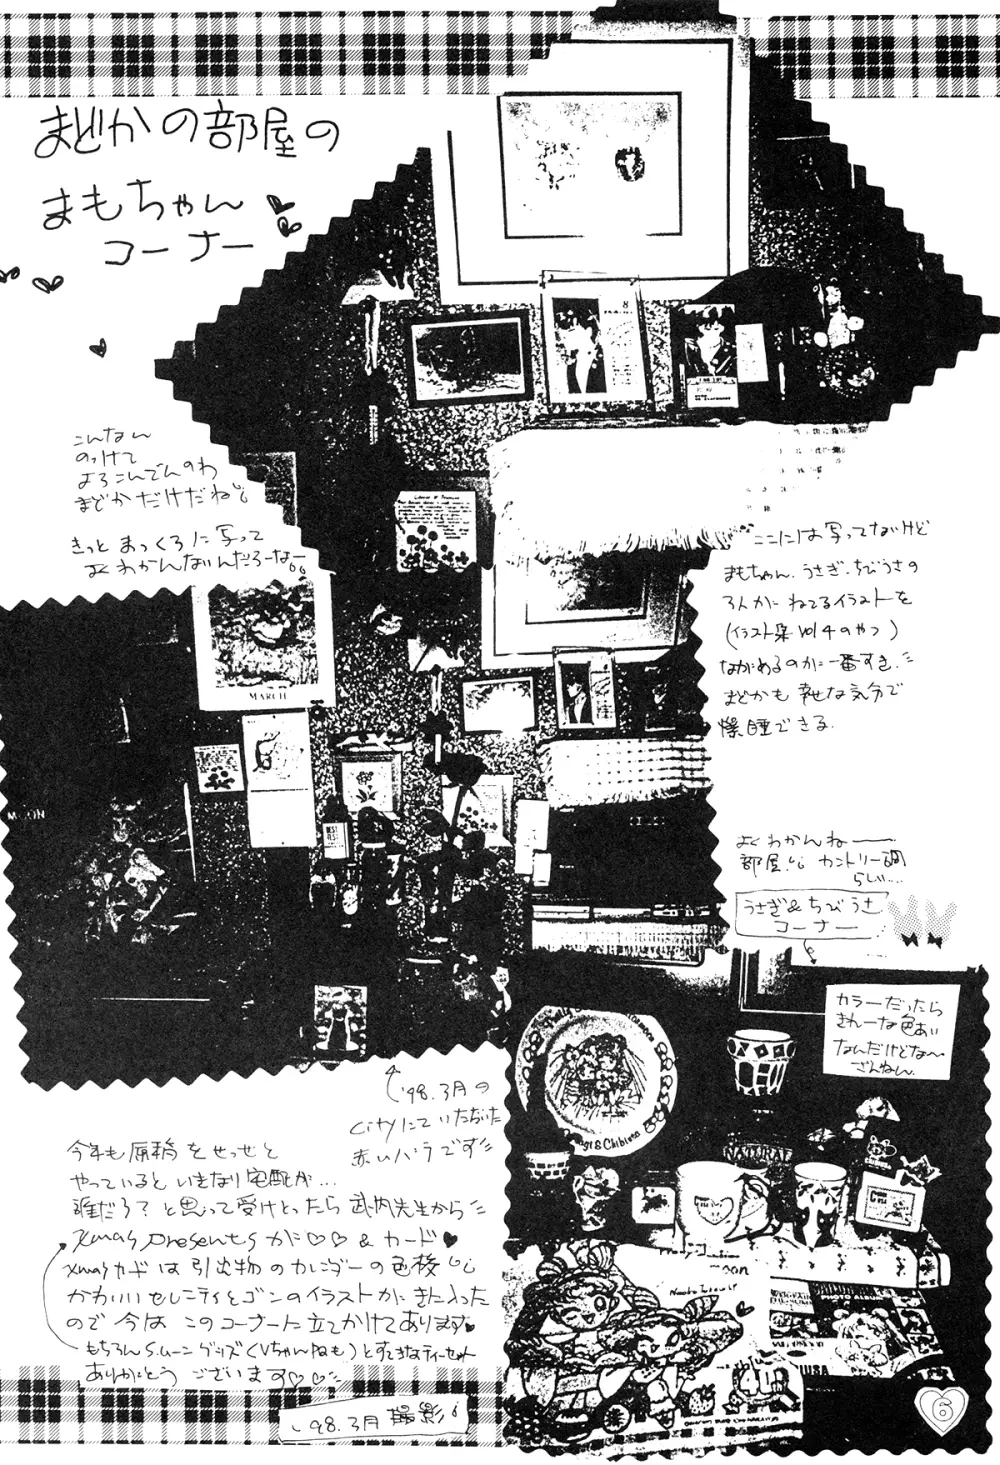 まどかの部屋の
まもちゃん
コーナー
こんなん
のっけて
よろこんでんのわ
まどかだけだね
きっと まっくろに写って
よくわかんないんだろーなー
ここには写ってないけど
まもちゃん、うさぎ、ちびうさの
3人がねてるイラストを
(イラスト集 Vol 4 のやつ)
ながめるのが一番すき
まどかも幸せな気分で
爆睡できる
MARCH
MOON
よくわかんねー
部屋 カントリー調
らしい…
うさぎ&ちびうさ
コーナー
カラーだったら
きれーな色あい
なんだけどな〜
ざんねん
'98.3月の
Cityにていただいた
赤いバラです
NATURAL
今年も原稿をせっせと
やっているといきなり宅配が…
誰だろ? と思って受けとったら 武内先生から
Xmas presents が♡♡ & カード♥
Xmasカードは引出物のカレンダーの色複
かわいいセレニティとゴンのイラストがきに入った
ので 今は このコーナーに立てかけてあります♥
もちろん S.ムーングッズ(Vちゃんねも)とすてきなティーセット
ありがとう ございます♡♡
'98.3月 撮影
PHOTO ALBUM
6